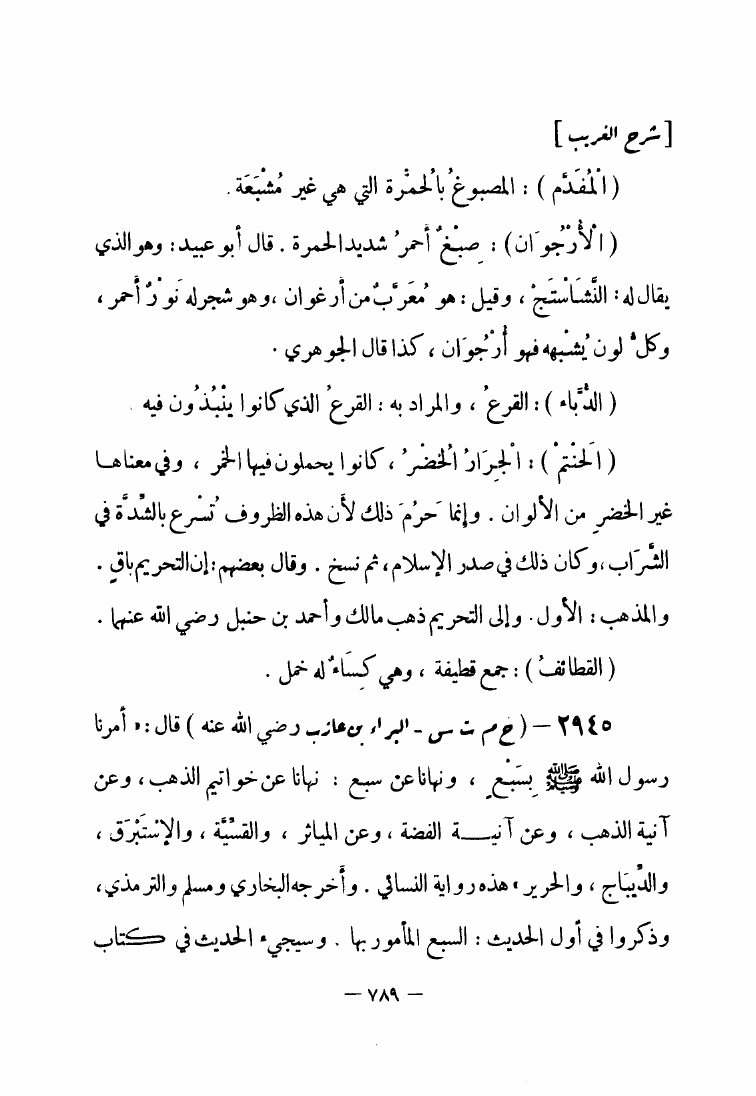 [ شرح الغريب ]
( الْمُفَدَّم ) : المصبوغُ بالْحمْرة التي هي غير مُشْبَعَة .
( الْأُرْجُوَان ) : صِبْغٌ أحمرُ شديد الحمرة . قال أبو عبيد : وهو الذي
يقال له : النَّشَاسْتَجْ ، وقيل : هو مُعَرَّبٌ من أرغوان ، وهو شجر له نَوْرٌ أحمر ،
وكلُّ لون يُشْبهه فهو أُرْجُوَان ، كذا قال الجوهري .
( الدُّبَّاء ) : القرعُ ، والمراد به : القرعُ الذي كانوا ينْبُذُون فيه .
( الَحنْتَم ) : الْجِرَارُ الْخضْرُ ، كانوا يحملون فيها الخمر ، وفي معناها
غير الخضرِ من الألوان . وإنما حَرُمَ ذلك لأن هذه الظروف تُسْرع بالشِّدَّة في
الشَّرَاب ، وكان ذلك في صدر الإسلام ، ثم نسخ . وقال بعضهم : إن التحريم باقٍ .
والمذهب : الأول . وإلى التحريم ذهب مالك وأحمد بن حنبل رضي الله عنهما .
( القطائفُ ) : جمع قطيفة ، وهي كِسَاءٌ له خمل .
٢٩٤٥ – ( خ م ت س - البراء بن عازب رضي الله عنه ) قال : « أمرنا
رسول الله ﷺ بِسَبْعٍ ، ونهانا عن سبع : نهانا عن خواتيم الذهب ، وعن
آنية الذهب ، وعن آنيـــة الفضة ، وعن المياثر ، والقسِّيَّة ، والإسْتَبْرَق ،
والدِّيبَاج ، والحرير » هذه رواية النسائي . وأخرجه البخاري ومسلم والترمذي ،
وذكروا في أول الحديث : السبع المأمور بها . وسيجيء الحديث في كتاب
— ٧٨٩ —